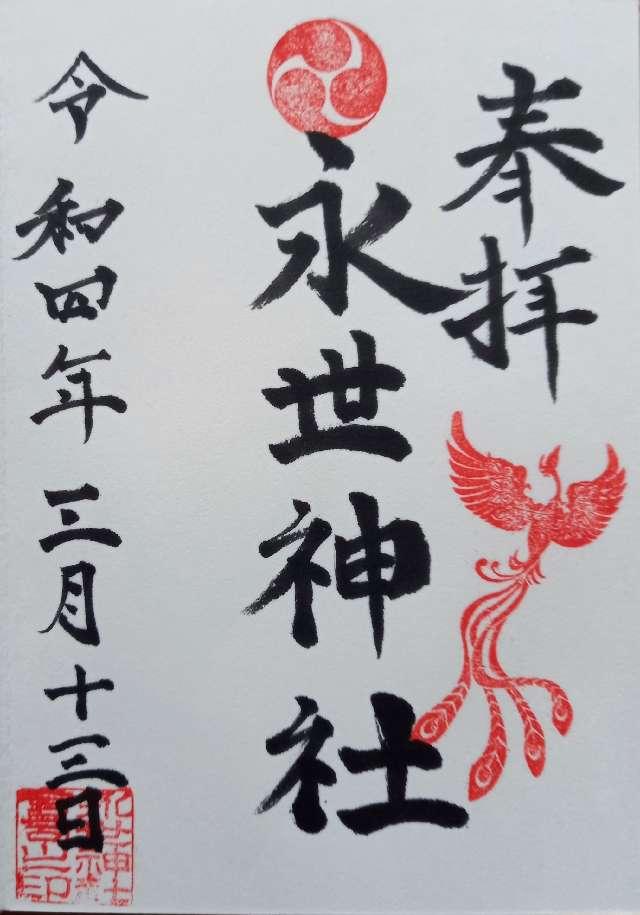 奉拝
永世神社
令和四年三月十三日